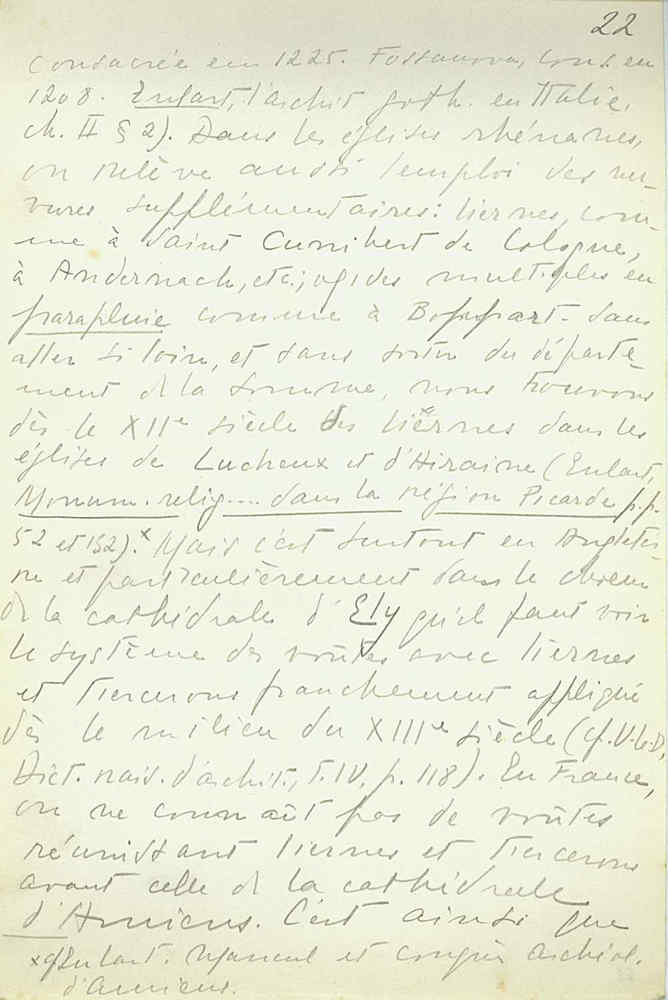 22
consacrée en 1225. Fossanova, cons. en
1208. Enlart, l'archit. goth. en Italie,
ch. II § 2). Dans les églises rhénanes,
on relève aussi l'emploi des ner-
vures supplémentaires: liernes, com-
me à Saint Cunibert de Cologne,
à Andernach, etc.; ogives multiples en
parapluie comme à Boppart. Sans
aller si loin, et sans sortir du départe-
ment de la Somme, nous trouvons
dès le XIIe siècle des liernes dans les
églises de Lucheux et d'Airaine (Enlart,
Monum. relig.... dans la région Picarde p.p.
52 et 132).x Mais c'est surtout en Angleter-
re et particulièrement dans le chœur
de la cathédrale d'Ely qu'il faut voir
le système des voûtes avec liernes
et tiercerons franchement appliqué
dès le milieu du XIIIe siècle (cf. V.-le-D,
Dict. rais. d'archit., T. IV, p. 118). En France,
on ne connaît pas de voûtes
réunissant liernes et tiercerons
avant celle de la cathédrale
d'Amiens. C'est ainsi que
x cf Enlart. Manuel et congrès archéol.
d'Amiens.